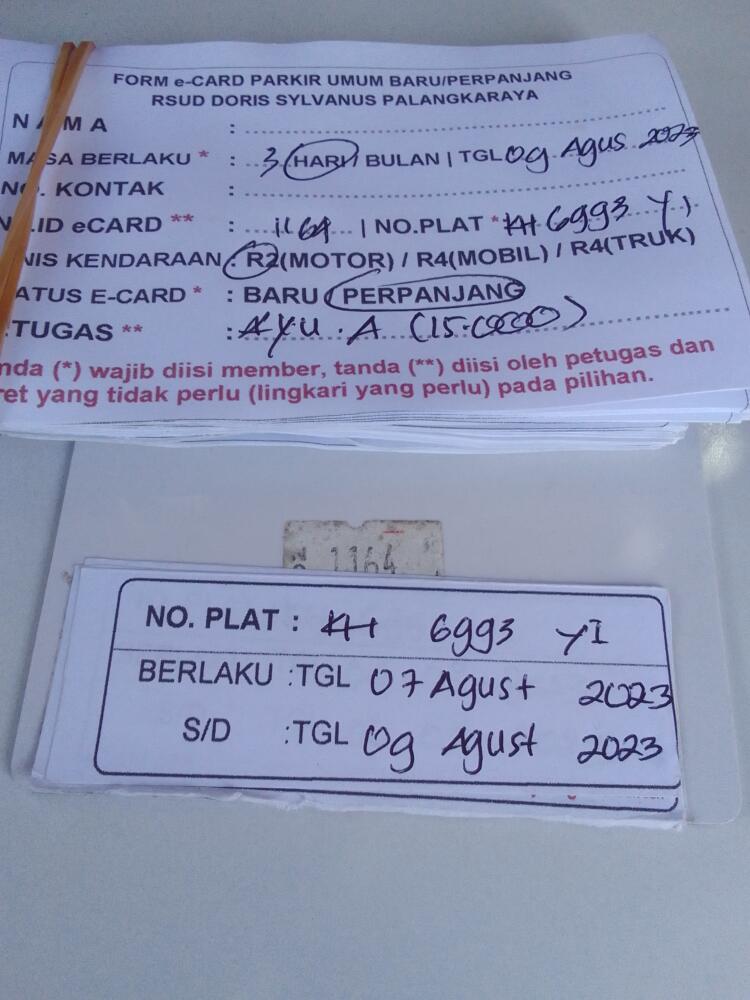 FORM e-CARD PARKIR UMUM BARU/PERPANJANG
RSUD DORIS SYLVANUS PALANGKARAYA
NAMA :
MASA BERLAKU * : 3 HARI/ BULAN | TGL 09 Agus 2023
NO. KONTAK :
.ID eCARD ** : 1164 | NO.PLAT * KH 6993 YI
NIS KENDARAAN : R2(MOTOR) / R4(MOBIL) / R4(TRUK)
ATUS E-CARD * : BARU / PERPANJANG
TUGAS ** : AYU . A (15.0000)
nda (*) wajib diisi member, tanda (**) diisi oleh petugas dan
ret yang tidak perlu (lingkari yang perlu) pada pilihan.
1164
NO. PLAT : KH 6993 YI
BERLAKU :TGL 07 Agust 2023
S/D :TGL 09 Agust 2023